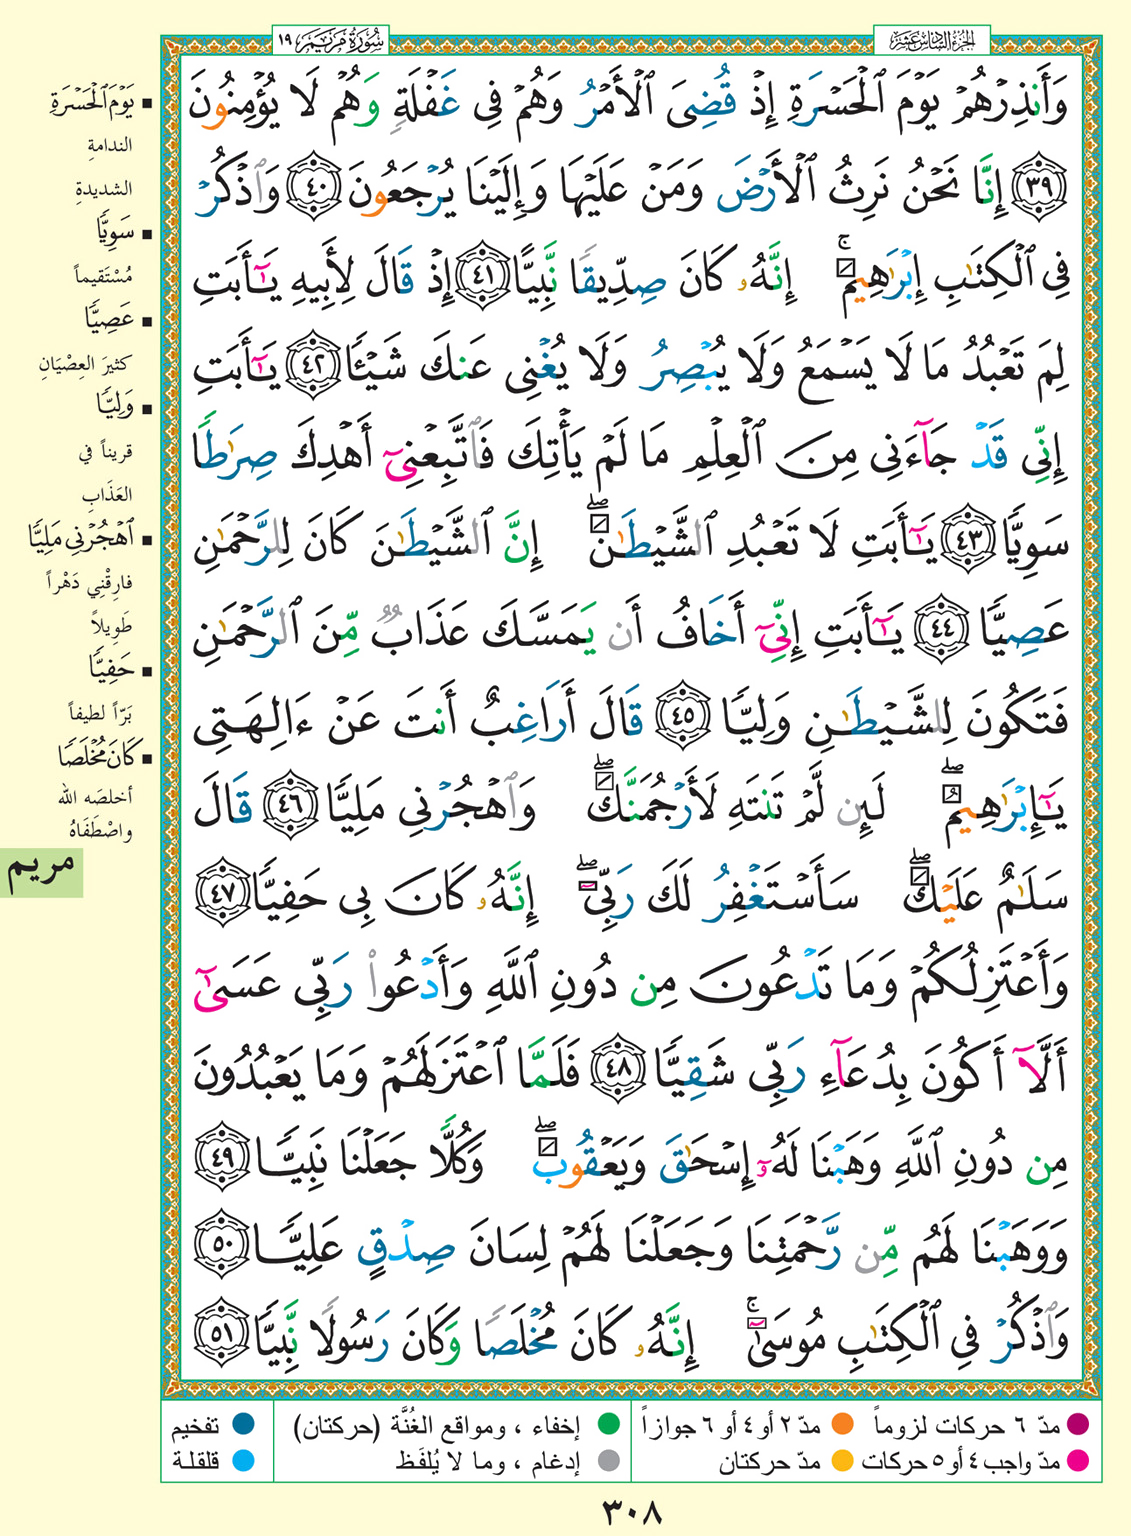 الجزء السادس عشر
سورة مريم ١٩
وَأَنذِرْهُمْ يَوْمَ ٱلْحَسْرَةِ إِذْ قُضِىَ ٱلْأَمْرُ وَهُمْ فِى غَفْلَةٍ وَهُمْ لَا يُؤْمِنُونَ
٣٩ إِنَّا نَحْنُ نَرِثُ ٱلْأَرْضَ وَمَنْ عَلَيْهَا وَإِلَيْنَا يُرْجَعُونَ ٤٠ وَٱذْكُرْ
فِى ٱلْكِتَٰبِ إِبْرَٰهِيمَ ۚ إِنَّهُۥ كَانَ صِدِّيقًا نَّبِيًّا ٤١ إِذْ قَالَ لِأَبِيهِ يَٰٓأَبَتِ
لِمَ تَعْبُدُ مَا لَا يَسْمَعُ وَلَا يُبْصِرُ وَلَا يُغْنِى عَنكَ شَيْـًٔا ٤٢ يَٰٓأَبَتِ
إِنِّى قَدْ جَآءَنِى مِنَ ٱلْعِلْمِ مَا لَمْ يَأْتِكَ فَٱتَّبِعْنِىٓ أَهْدِكَ صِرَٰطًا
سَوِيًّا ٤٣ يَٰٓأَبَتِ لَا تَعْبُدِ ٱلشَّيْطَٰنَ ۖ إِنَّ ٱلشَّيْطَٰنَ كَانَ لِلرَّحْمَٰنِ
عَصِيًّا ٤٤ يَٰٓأَبَتِ إِنِّىٓ أَخَافُ أَن يَمَسَّكَ عَذَابٌ مِّنَ ٱلرَّحْمَٰنِ
فَتَكُونَ لِلشَّيْطَٰنِ وَلِيًّا ٤٥ قَالَ أَرَاغِبٌ أَنتَ عَنْ ءَالِهَتِى
يَٰٓإِبْرَٰهِيمُ ۖ لَئِن لَّمْ تَنتَهِ لَأَرْجُمَنَّكَ ۖ وَٱهْجُرْنِى مَلِيًّا ٤٦ قَالَ
سَلَٰمٌ عَلَيْكَ ۖ سَأَسْتَغْفِرُ لَكَ رَبِّىٓ ۖ إِنَّهُۥ كَانَ بِى حَفِيًّا ٤٧
وَأَعْتَزِلُكُمْ وَمَا تَدْعُونَ مِن دُونِ ٱللَّهِ وَأَدْعُوا۟ رَبِّى عَسَىٰٓ
أَلَّآ أَكُونَ بِدُعَآءِ رَبِّى شَقِيًّا ٤٨ فَلَمَّا ٱعْتَزَلَهُمْ وَمَا يَعْبُدُونَ
مِن دُونِ ٱللَّهِ وَهَبْنَا لَهُۥٓ إِسْحَٰقَ وَيَعْقُوبَ ۖ وَكُلًّا جَعَلْنَا نَبِيًّا ٤٩
وَوَهَبْنَا لَهُم مِّن رَّحْمَتِنَا وَجَعَلْنَا لَهُمْ لِسَانَ صِدْقٍ عَلِيًّا ٥٠
وَٱذْكُرْ فِى ٱلْكِتَٰبِ مُوسَىٰٓ ۚ إِنَّهُۥ كَانَ مُخْلَصًا وَكَانَ رَسُولًا نَّبِيًّا ٥١
■ يَوْمَ ٱلْحَسْرَةِ
الندامةِ
الشديدةِ
■ سَوِيًّا
مُسْتَقيماً
■ عَصِيًّا
كثيرَ العِصْيَانِ
■ وَلِيًّا
قريناً في
العَذَابِ
■ ٱهْجُرْنِى مَلِيًّا
فارِقْنِي دَهْراً
طَوِيلاً
■ حَفِيًّا
بَرّاً لطيفاً
■ كَانَ مُخْلَصًا
أخلصَه الله
واصْطَفَاهُ
مريم
مدّ ٦ حركات لزوماً
مدّ ٢ أو ٤ أو ٦ جوازاً
إخفاء ، ومواقع الغُنَّة (حركتان)
تفخيم
مدّ واجب ٤ أو ٥ حركات
مدّ حركتان
إدغام ، وما لا يُلفَظ
قلقلة
٣٠٨